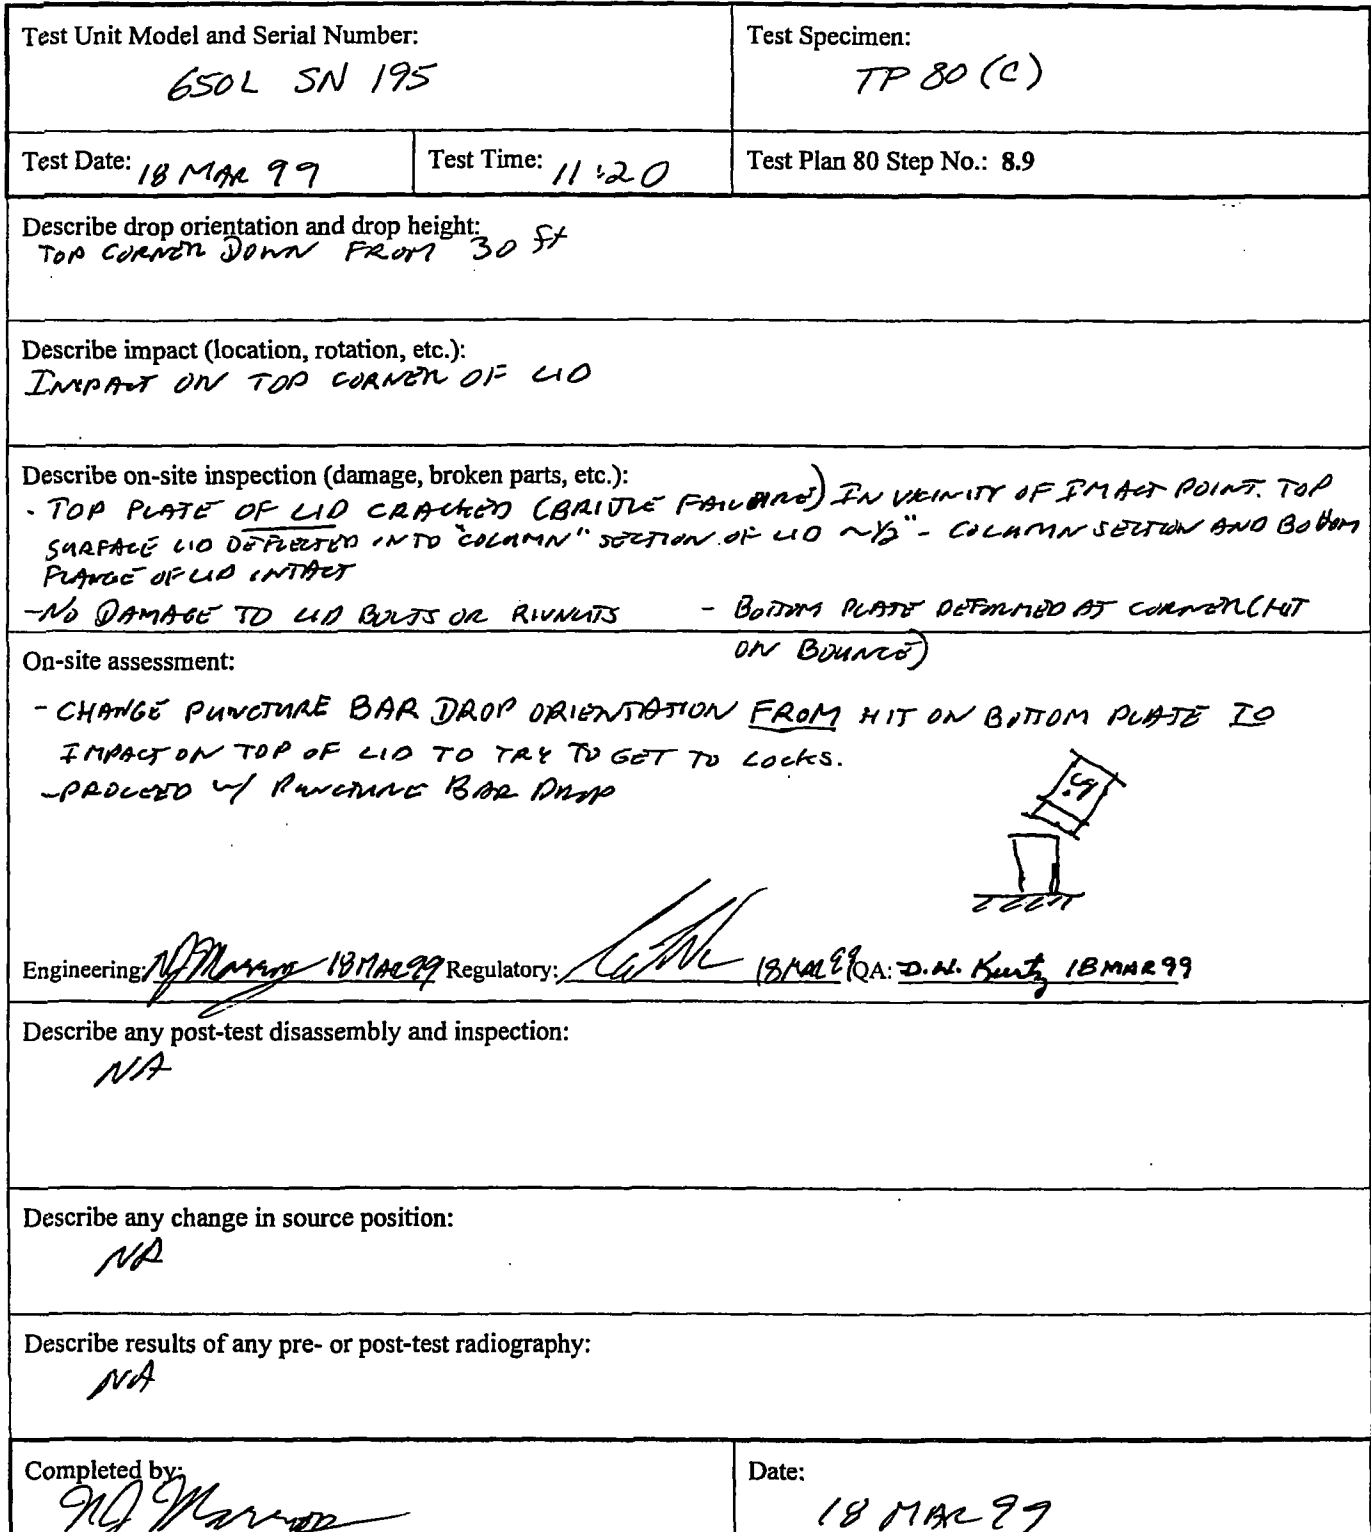 Test Unit Model and Serial Number:
650L SN 195
Test Specimen:
TP 80 (C)
Test Date: 18 MAR 99
Test Time: 11:20
Test Plan 80 Step No.: 8.9
Describe drop orientation and drop height:
TOP CORNER DOWN FROM 30 ft
Describe impact (location, rotation, etc.):
IMPACT ON TOP CORNER OF LID
Describe on-site inspection (damage, broken parts, etc.):
- TOP PLATE OF LID CRACKED (BRITTLE FAILURE) IN VICINITY OF IMPACT POINT. TOP
SURFACE LID DEFLECTED INTO "COLUMN" SECTION OF LID ~1/2" - COLUMN SECTION AND BOTTOM
FLANGE OF LID INTACT
- NO DAMAGE TO LID BOLTS OR RIVNUTS
- BOTTOM PLATE DEFORMED AT CORNER (HIT
ON BOUNCE)
On-site assessment:
- CHANGE PUNCTURE BAR DROP ORIENTATION FROM HIT ON BOTTOM PLATE TO
IMPACT ON TOP OF LID TO TRY TO GET TO LOCKS.
- PROCEED w/ PUNCTURE BAR DROP
cg
Engineering: 18 MAR 99 Regulatory: 18 MAR 99 QA: D.W. Kurtz 18 MAR 99
Describe any post-test disassembly and inspection:
NA
Describe any change in source position:
NA
Describe results of any pre- or post-test radiography:
NA
Completed by:
Date:
18 MAR 99